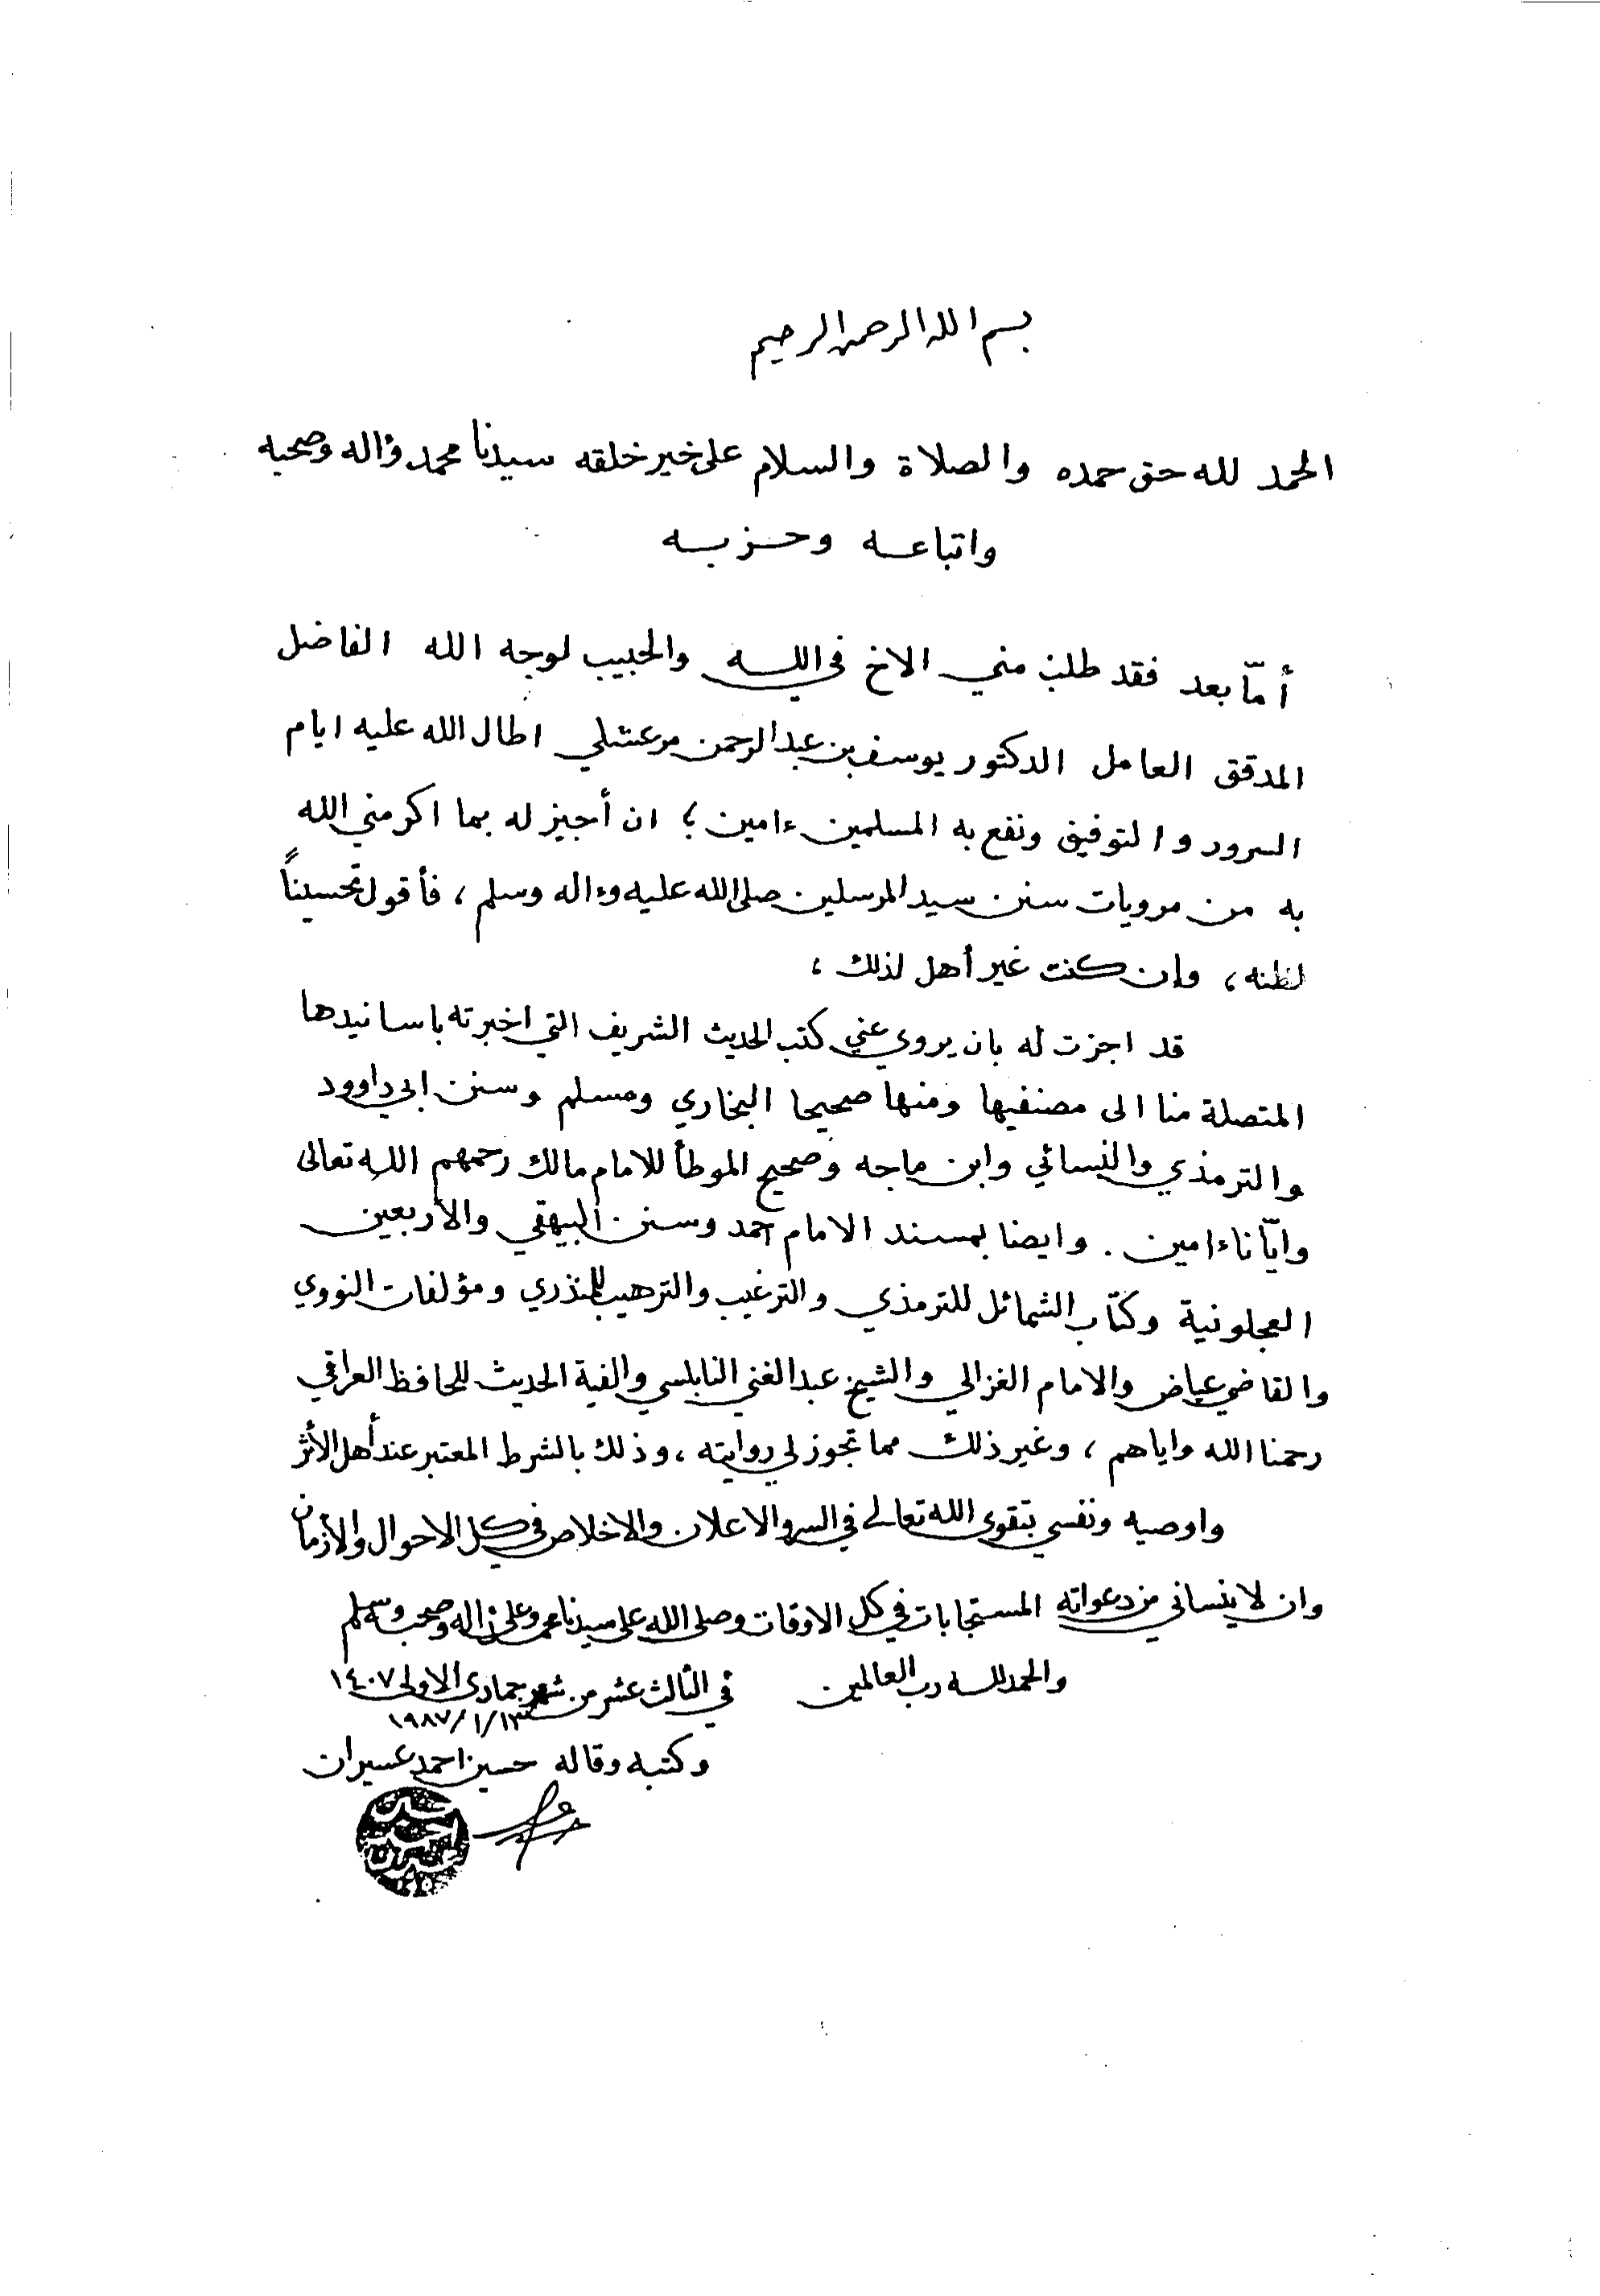 بسم الله الرحمن الرحيم
الحمد لله حق حمده والصلاة والسلام على خير خلقه سيدنا محمد وءاله وصحبه
واتباعه وحزبه
أمّا بعد فقد طلب مني الاخ في الله والحبيب لوجه الله الفاضل
المدقق العامل الدكتور يوسف بن عبد الرحمن مرعشلي اطال الله عليه ايام
السرور والتوفيق ونفع به المسلمين ءامين؛ ان أجيز له بما اكرمني الله
به من مرويات سنن سيد المرسلين صلى الله عليه وءاله وسلم، فأقول تحسيناً
لظنه، وإن كنت غير أهل لذلك،
قد اجزت له بان يروي عني كتب الحديث الشريف التي اخبرته باسانيدها
المتصلة منا الى مصنفيها ومنها صحيحا البخاري ومسلم وسنن ابي داوود
والترمذي والنسائي وابن ماجه وصحيح الموطأ للامام مالك رحمهم الله تعالى
وايّانا ءامين. وايضا بمسند الامام احمد وسنن البيهقي والأربعين
العجلونية وكتاب الشمائل للترمذي والترغيب والترهيب للمنذري ومؤلفات النووي
والقاضي عياض والامام الغزالي والشيخ عبد الغني النابلسي والفية الحديث للحافظ العراقي
رحمنا الله واياهم، وغير ذلك مما تجوز لي روايته، وذلك بالشرط المعتبر عند أهل الأثر
واوصيه ونفسي بتقوى الله تعالى في السر والاعلان والاخلاص في كل الاحوال والأزمان
وان لا ينساني من دعواته المستجابات في كل الاوقات وصلى الله على سيدنا محمد وعلى ءاله وصحبه وسلم
والحمد لله رب العالمين في الثالث عشر من شهر جمادى الاولى ١٤٠٧
١٩٨٧/١/١٣
وكتبه وقاله حسين احمد عسيران